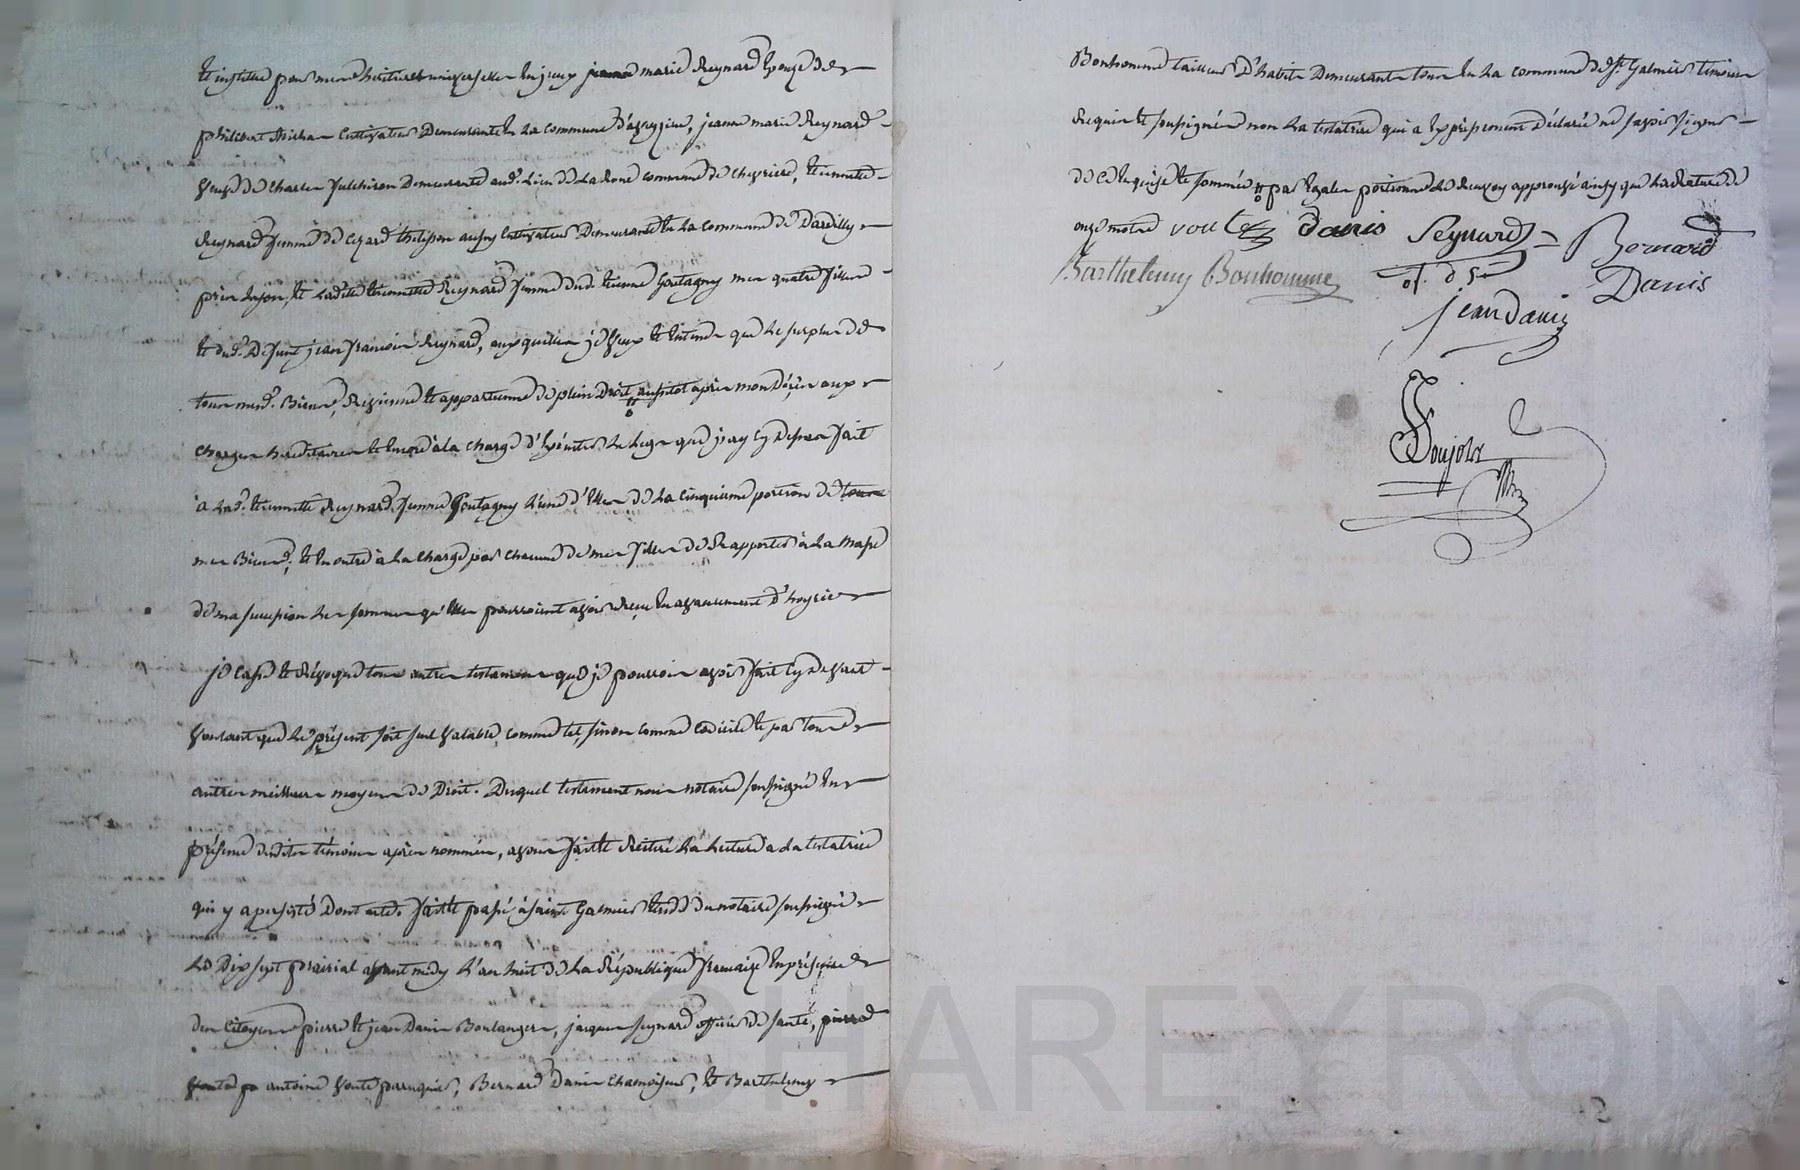 et institue pour mes héritières universelles en jeux jeanne marie Reynard épouse de
philibert Michan cultivateur Demeurante en La commune d'aveyzieu, jeanne marie Reynard
veuve de Charles Julchiron Demeurante aud. Lieu de La Rone commune de Chevriere, étiennette
Reynard femme de Cezard thelisson aussy cultivateur Demeurante en La commune de Dardilly
près Lyon, et Ladite étiennette Reynard femme dud. étienne Goutagny mes quatre filles
et dud. Défunt jean francois Reynard, auxquelles je veux et Entends que Le surplus de
tous mesd. Biens, Revienne et appartienne de plein Droit aussitot après mon Décès aux
charges héréditaires et Encore à la charge d'Exécuter Le Legs que j'ay cy Dessus fait
à Lad. étiennette Reynard femme Goutagny L'une d'Elles de La cinquieme portion de tous
mes Biens; et En outre à La charge par chacune de mes filles de Rapporter à La Masse
de ma succession Les sommes qu'Elles pourroient avoir Reçu En avancement d'hoyrie
je casse et Révoque tous autres testamens que je pourrois avoir fait cy Devant
voulant que Le présent soit seul valable, comme tel, sinon comme codicile et par tous
autres meilleurs moyens de Droit. Duquel testament nous notaire soussigné En
présence desdits témoins après nommés, avons fait et Réitéré La Lecture à La testatrice
qui y a persisté Dont acte. fait et passé à saint Galmier Etude du notaire soussigné
Le Dix sept prairial avant midy L'an huit de La République française En présence
des citoyens pierre et jean Danis Boulangers, jacques seynard officier de santé, pierre
voute pr antoine voute perruquier, Bernard Danis Chamoiseur, et Barthelemy
Bonhomme tailleur D'habits Demeurants tous En La commune de St. Galmier témoins
Requis et soussignés non La testatrice qui a Expressement Déclaré ne savoir signer
de ce Enquise et sommée par Egales portions Le Renvoy approuvé ainsy que La Rature de
onze mots voute Danis Seynard Bernard
Barthelemy Bonhomme of. d. s. Danis
jean danis
Poujolx
CHAREYRON